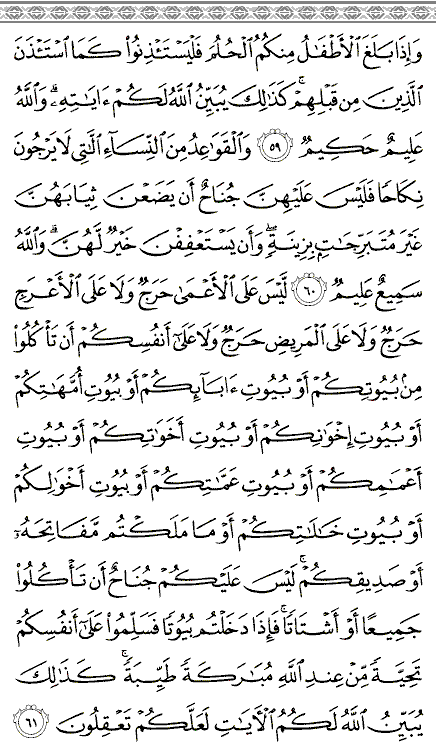 وَإِذَا بَلَغَ ٱلْأَطْفَٰلُ مِنكُمُ ٱلْحُلُمَ فَلْيَسْتَـْٔذِنُوا۟ كَمَا ٱسْتَـْٔذَنَ
ٱلَّذِينَ مِن قَبْلِهِمْ ۚ كَذَٰلِكَ يُبَيِّنُ ٱللَّهُ لَكُمْ ءَايَٰتِهِۦ ۗ وَٱللَّهُ
عَلِيمٌ حَكِيمٌ ۝٥٩ وَٱلْقَوَٰعِدُ مِنَ ٱلنِّسَآءِ ٱلَّٰتِى لَا يَرْجُونَ
نِكَاحًا فَلَيْسَ عَلَيْهِنَّ جُنَاحٌ أَن يَضَعْنَ ثِيَابَهُنَّ
غَيْرَ مُتَبَرِّجَٰتٍۭ بِزِينَةٍ ۖ وَأَن يَسْتَعْفِفْنَ خَيْرٌ لَّهُنَّ ۗ وَٱللَّهُ
سَمِيعٌ عَلِيمٌ ۝٦٠ لَّيْسَ عَلَى ٱلْأَعْمَىٰ حَرَجٌ وَلَا عَلَى ٱلْأَعْرَجِ
حَرَجٌ وَلَا عَلَى ٱلْمَرِيضِ حَرَجٌ وَلَا عَلَىٰٓ أَنفُسِكُمْ أَن تَأْكُلُوا۟
مِنۢ بُيُوتِكُمْ أَوْ بُيُوتِ ءَابَآئِكُمْ أَوْ بُيُوتِ أُمَّهَٰتِكُمْ
أَوْ بُيُوتِ إِخْوَٰنِكُمْ أَوْ بُيُوتِ أَخَوَٰتِكُمْ أَوْ بُيُوتِ
أَعْمَٰمِكُمْ أَوْ بُيُوتِ عَمَّٰتِكُمْ أَوْ بُيُوتِ أَخْوَٰلِكُمْ
أَوْ بُيُوتِ خَٰلَٰتِكُمْ أَوْ مَا مَلَكْتُم مَّفَاتِحَهُۥٓ
أَوْ صَدِيقِكُمْ ۚ لَيْسَ عَلَيْكُمْ جُنَاحٌ أَن تَأْكُلُوا۟
جَمِيعًا أَوْ أَشْتَاتًا ۚ فَإِذَا دَخَلْتُم بُيُوتًا فَسَلِّمُوا۟ عَلَىٰٓ أَنفُسِكُمْ
تَحِيَّةً مِّنْ عِندِ ٱللَّهِ مُبَٰرَكَةً طَيِّبَةً ۚ كَذَٰلِكَ
يُبَيِّنُ ٱللَّهُ لَكُمُ ٱلْءَايَٰتِ لَعَلَّكُمْ تَعْقِلُونَ ۝٦١